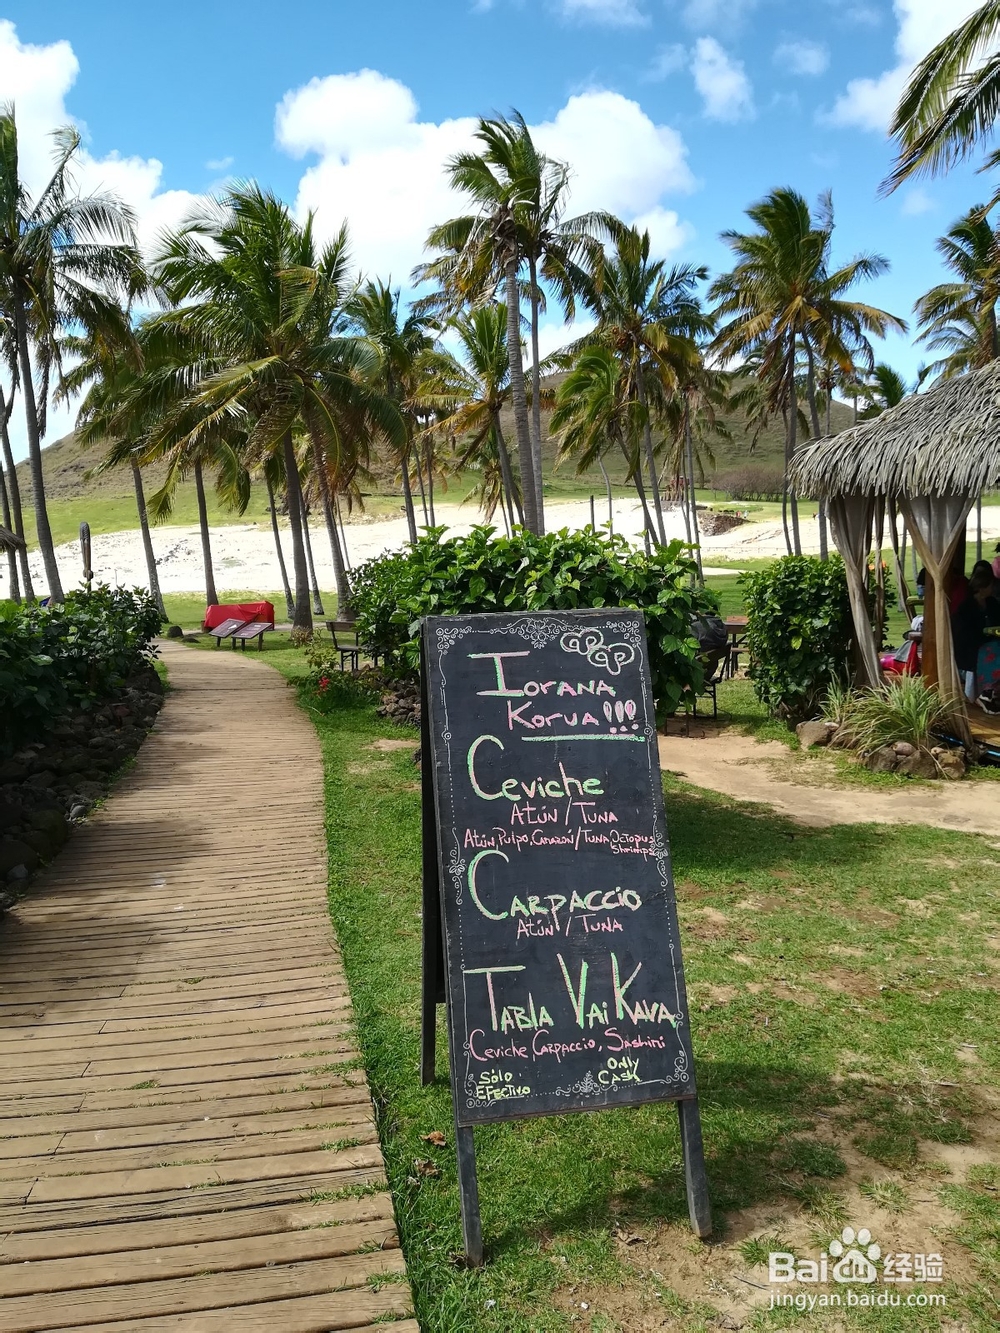 Iorana
Korua !!!
Ceviche
Atún / Tuna
Atún, Pulpo, Camarón / Tuna Octopus
Shrimps
Carpaccio
Atún / Tuna
Tabla Vai Kava
Ceviche Carpaccio, Sashini
Sólo
Efectivo
Only
Cash
Bai du 经验
jingyan.baidu.com